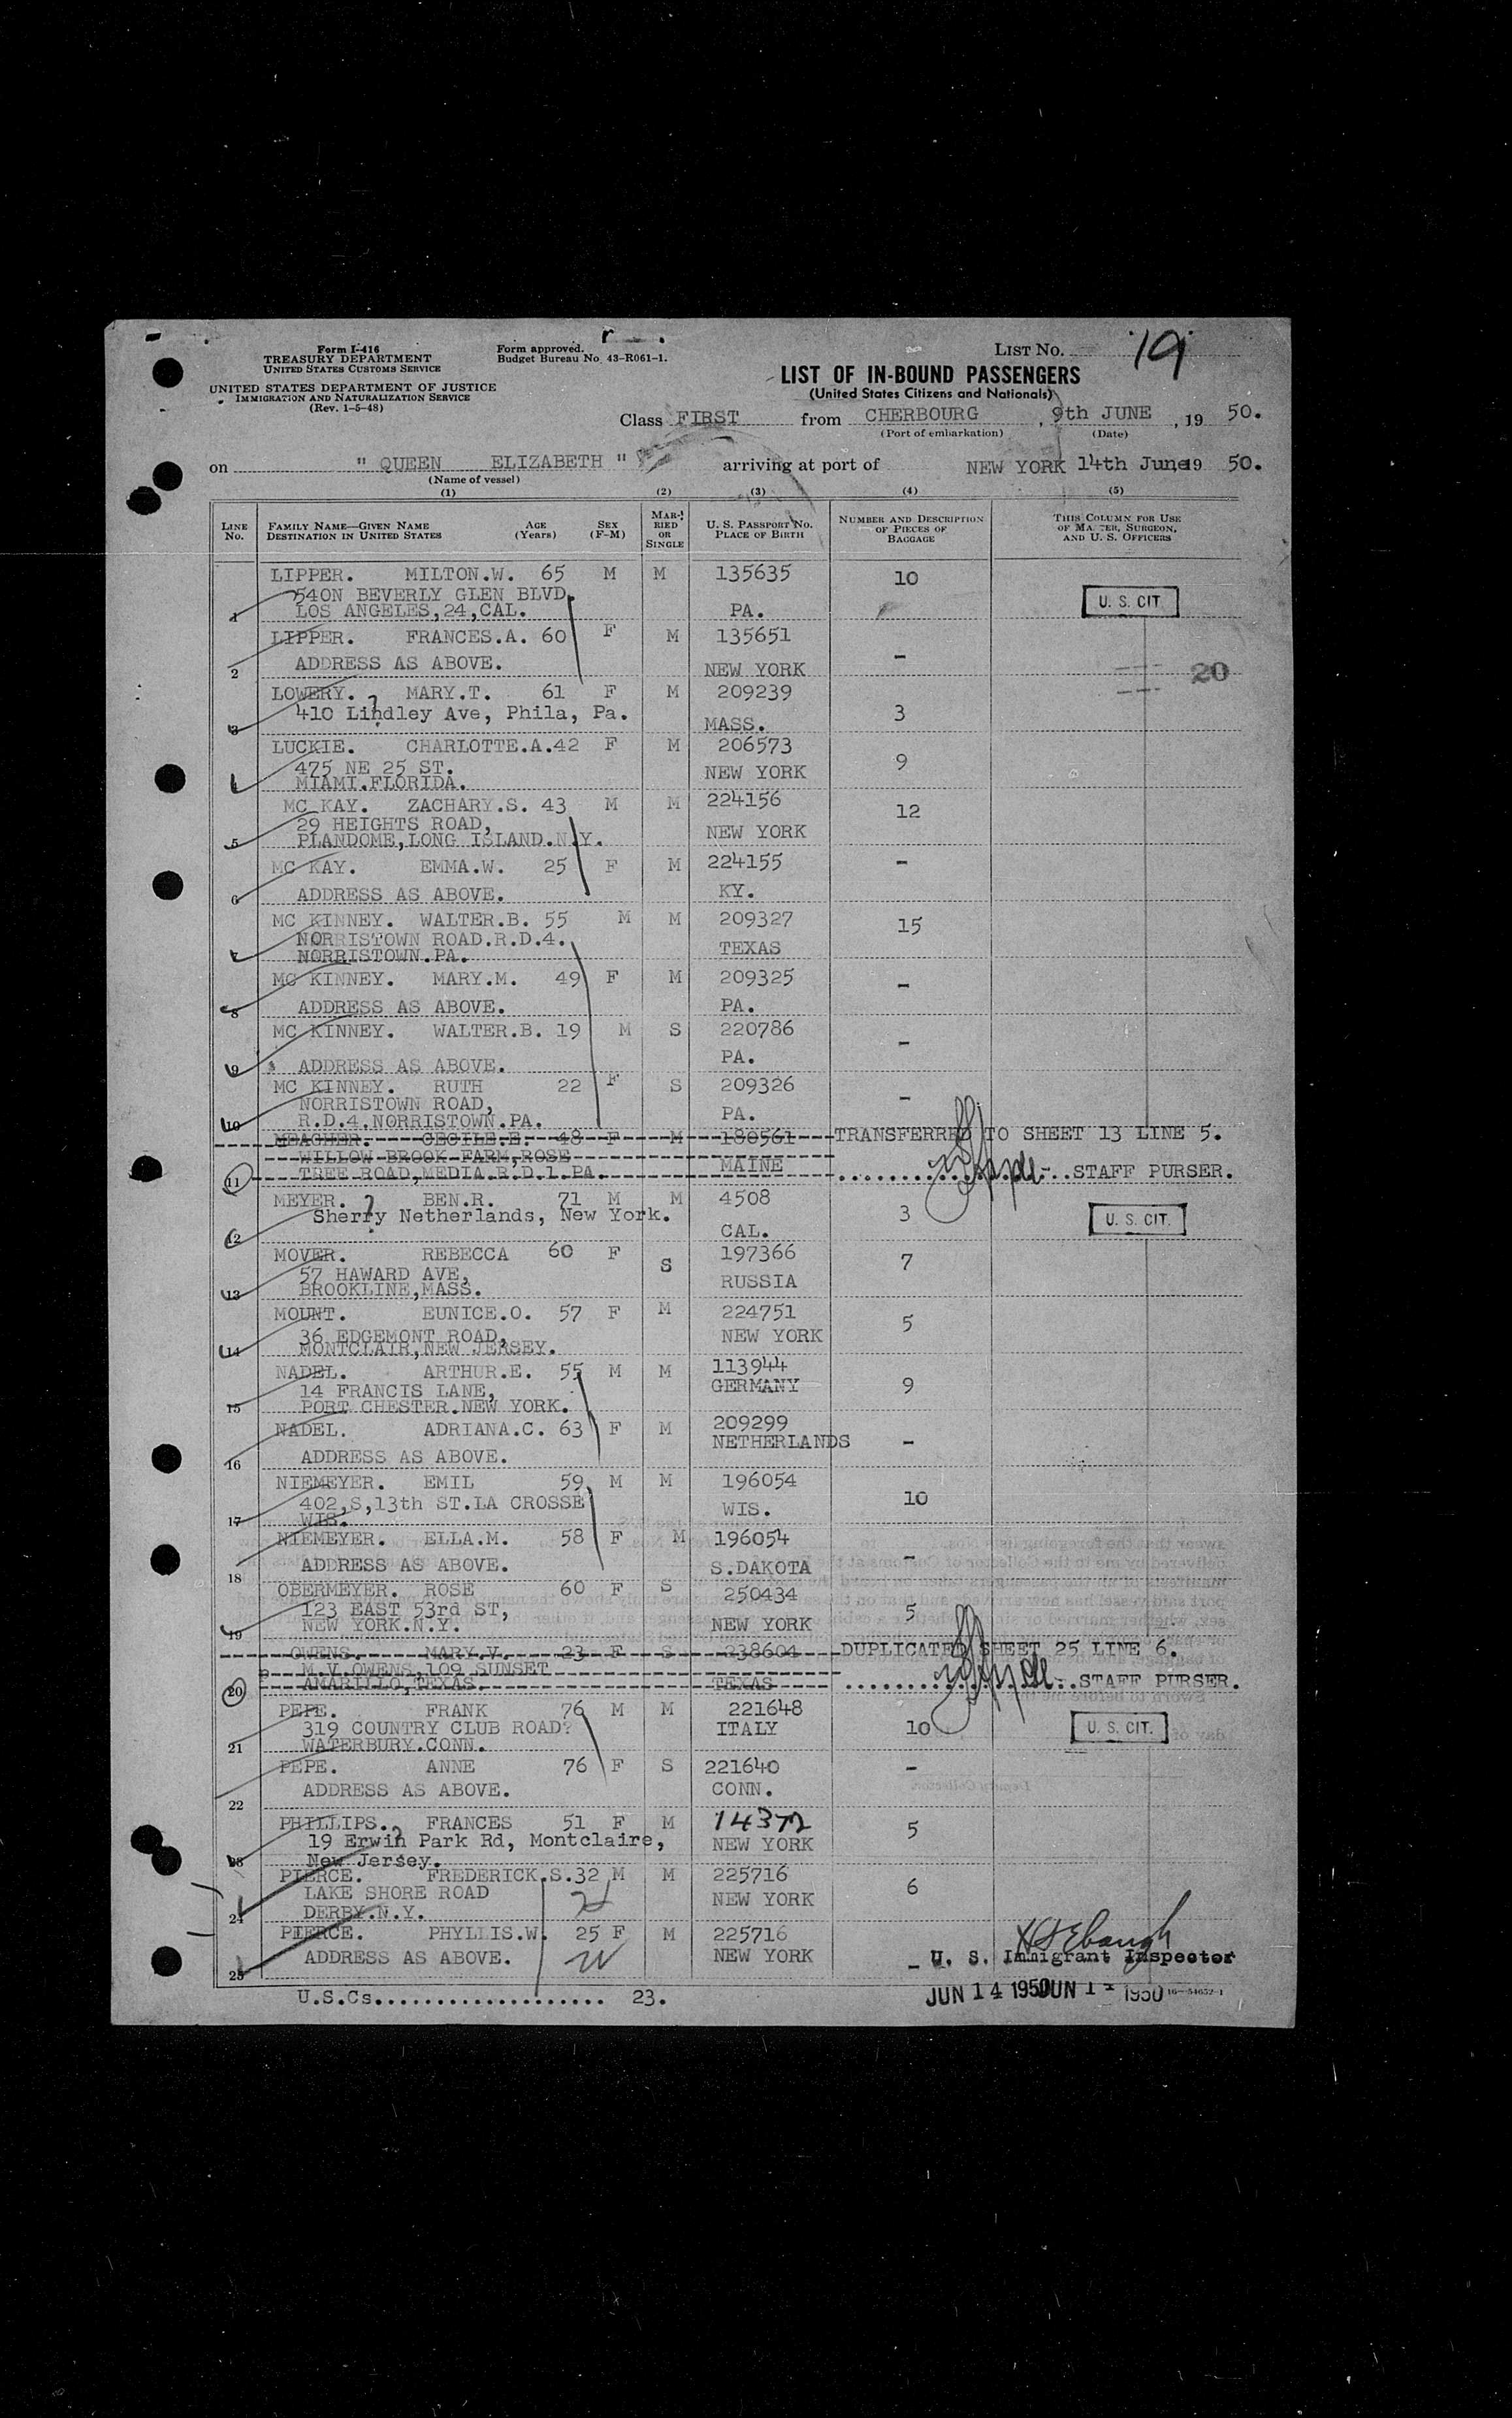 Form I-416
TREASURY DEPARTMENT
UNITED STATES CUSTOMS SERVICE
UNITED STATES DEPARTMENT OF JUSTICE
IMMIGRATION AND NATURALIZATION SERVICE
(Rev. 1-5-48)
Form approved.
Budget Bureau No. 43-R061-1.
LIST NO. 19
LIST OF IN-BOUND PASSENGERS
(United States Citizens and Nationals)
Class FIRST from CHERBOURG, 9th JUNE, 19 50.
(Port of embarkation) (Date)
on " QUEEN ELIZABETH " arriving at port of NEW YORK 14th June, 19 50.
(Name of vessel)
(1) (2) (3) (4) (5)
LINE No. FAMILY NAME—GIVEN NAME DESTINATION IN UNITED STATES AGE (Years) SEX (F-M) MARRIED OR SINGLE U. S. PASSPORT No. PLACE OF BIRTH NUMBER AND DESCRIPTION OF PIECES OF BAGGAGE THIS COLUMN FOR USE OF MASTER, SURGEON, AND U. S. OFFICERS
LIPPER. MILTON.W. 65 M M 135635 10
540N BEVERLY GLEN BLVD. U. S. CIT.
1 LOS ANGELES,24,CAL. PA.
LIPPER. FRANCES.A. 60 F M 135651 -
2 ADDRESS AS ABOVE. NEW YORK 20
LOWERY. MARY.T. 61 F M 209239
410 Lindley Ave, Phila, Pa. 3
3 MASS.
LUCKIE. CHARLOTTE.A.42 F M 206573
475 NE 25 ST. NEW YORK 9
4 MIAMI.FLORIDA.
MC KAY. ZACHARY.S. 43 M M 224156 12
29 HEIGHTS ROAD,
5 PLANDOME,LONG ISLAND.N.Y. NEW YORK
MC KAY. EMMA.W. 25 F M 224155 -
6 ADDRESS AS ABOVE. KY.
MC KINNEY. WALTER.B. 55 M M 209327 15
NORRISTOWN ROAD.R.D.4.
7 NORRISTOWN.PA. TEXAS
MC KINNEY. MARY.M. 49 F M 209325 -
8 ADDRESS AS ABOVE. PA.
MC KINNEY. WALTER.B. 19 M S 220786 -
9 ADDRESS AS ABOVE. PA.
MC KINNEY. RUTH 22 F S 209326 -
NORRISTOWN ROAD,
10 R.D.4.NORRISTOWN.PA. PA.
MEACHER. CECILE.E. 48 F M 180561 TRANSFERRED TO SHEET 13 LINE 5.
WILLOW BROOK FARM,ROSE
11 TREE ROAD,MEDIA.R.D.1.PA. MAINE STAFF PURSER.
MEYER. BEN.R. 71 M M 4508 3
Sherry Netherlands, New York. U. S. CIT.
12 CAL.
MOVER. REBECCA 60 F S 197366 7
57 HAWARD AVE,
13 BROOKLINE,MASS. RUSSIA
MOUNT. EUNICE.O. 57 F M 224751 5
36 EDGEMONT ROAD,
14 MONTCLAIR,NEW JERSEY. NEW YORK
NADEL. ARTHUR.E. 55 M M 113944
14 FRANCIS LANE, GERMANY 9
15 PORT CHESTER.NEW YORK.
NADEL. ADRIANA.C. 63 F M 209299
NETHERLANDS -
16 ADDRESS AS ABOVE.
NIEMEYER. EMIL 59 M M 196054
402,S,13th ST.LA CROSSE 10
17 WIS. WIS.
NIEMEYER. ELLA.M. 58 F M 196054 -
18 ADDRESS AS ABOVE. S.DAKOTA
OBERMEYER. ROSE 60 F S 250434
123 EAST 53rd ST, 5
19 NEW YORK.N.Y. NEW YORK
OWENS. MARY.V. 23 F S 238604 DUPLICATED SHEET 25 LINE 6.
M.V.OWENS,109 SUNSET
20 AMARILLO,TEXAS. TEXAS STAFF PURSER.
PEPE. FRANK 76 M M 221648
319 COUNTRY CLUB ROAD? ITALY 10 U. S. CIT.
21 WATERBURY.CONN.
PEPE. ANNE 76 F S 221640 -
22 ADDRESS AS ABOVE. CONN.
PHILLIPS. FRANCES 51 F M 14372 5
19 Erwin Park Rd, Montclaire, NEW YORK
23 New Jersey.
PIERCE. FREDERICK.S.32 M M 225716
LAKE SHORE ROAD NEW YORK 6
24 DERBY.N.Y.
PIERCE. PHYLLIS.W. 25 F M 225716
25 ADDRESS AS ABOVE. NEW YORK - U. S. Immigrant Inspector
U.S.Cs.................... 23. JUN 14 1950 JUN 1 1950 16—54652-1